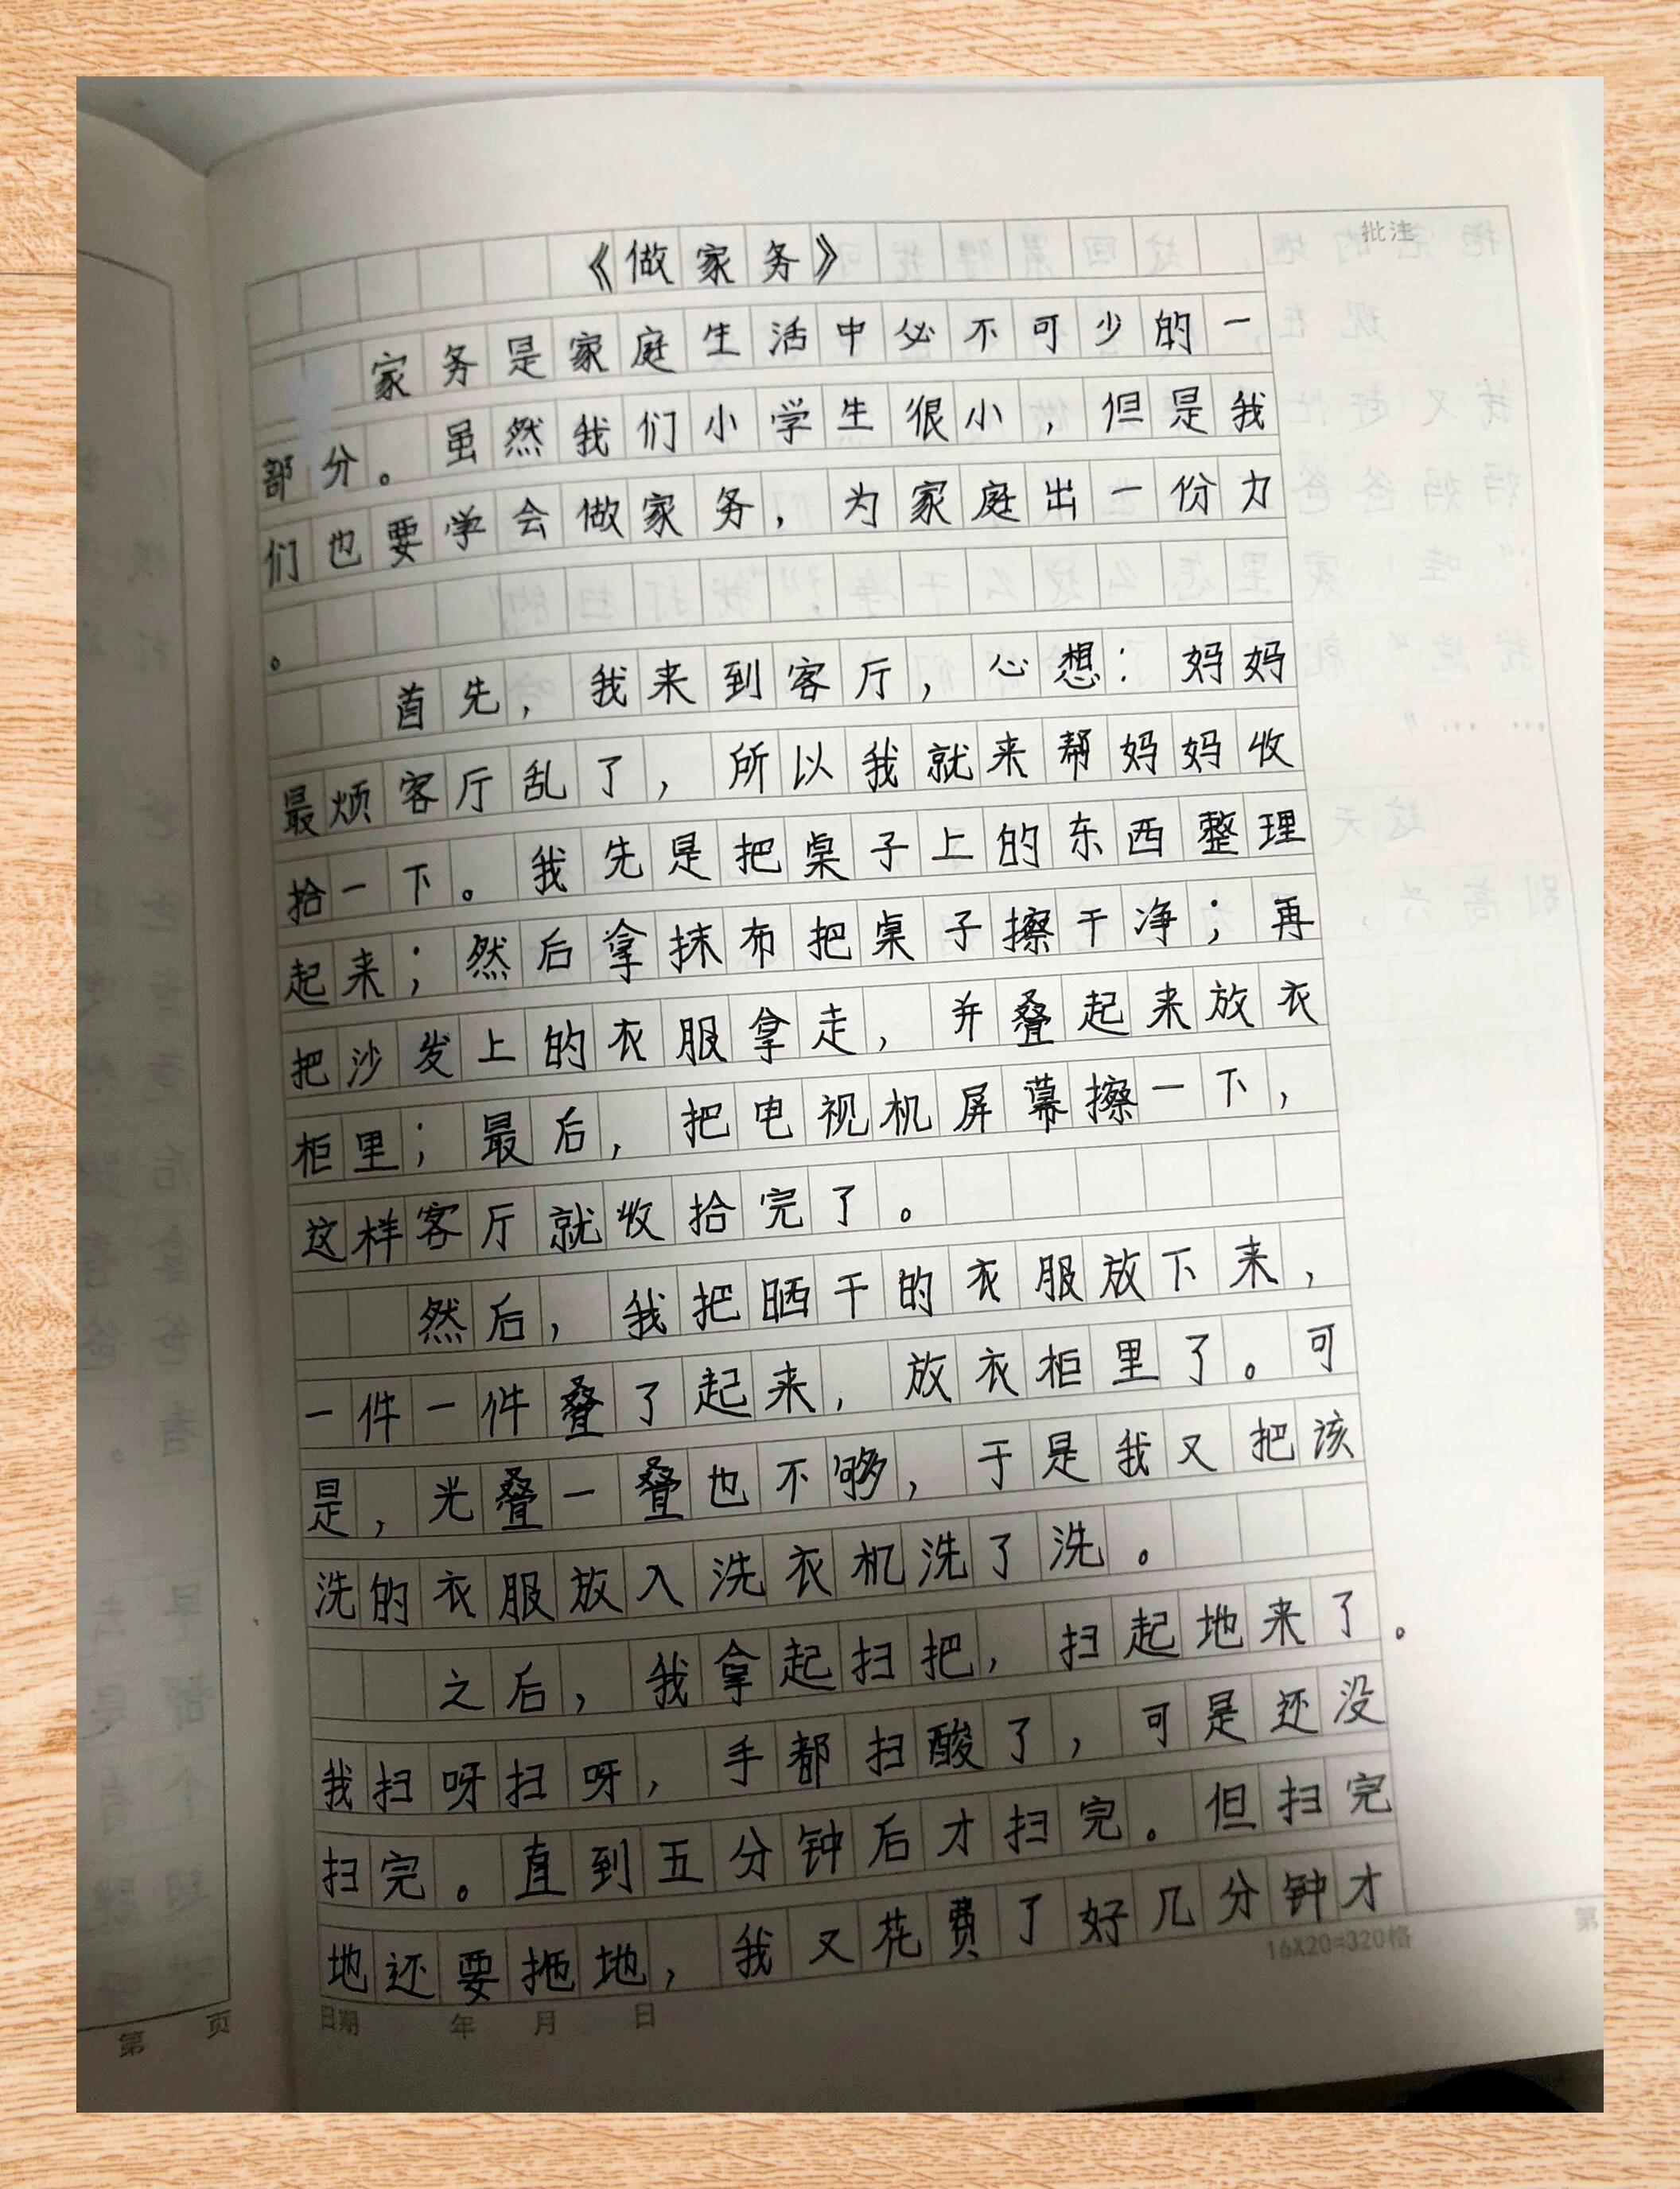 批注
《做家务》
家务是家庭生活中必不可少的一
部分。虽然我们小学生很小，但是我
们也要学会做家务，为家庭出一份力
。
首先，我来到客厅，心想：妈妈
最烦客厅乱了，所以我就来帮妈妈收
拾一下。我先是把桌子上的东西整理
起来；然后拿抹布把桌子擦干净；再
把沙发上的衣服拿走，并叠起来放衣
柜里；最后，把电视机屏幕擦一下，
这样客厅就收拾完了。
然后，我把晒干的衣服放下来，
一件一件叠了起来，放衣柜里了。可
是，光叠一叠也不够，于是我又把该
洗的衣服放入洗衣机洗了洗。
之后，我拿起扫把，扫起地来了。
我扫呀扫呀，手都扫酸了，可是还没
扫完。直到五分钟后才扫完。但扫完
地还要拖地，我又花费了好几分钟才
16X20=320格
日期 年 月 日
第 页
第